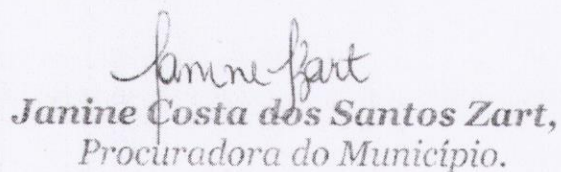 Janine Zart
Janine Costa dos Santos Zart,
Procuradora do Município.